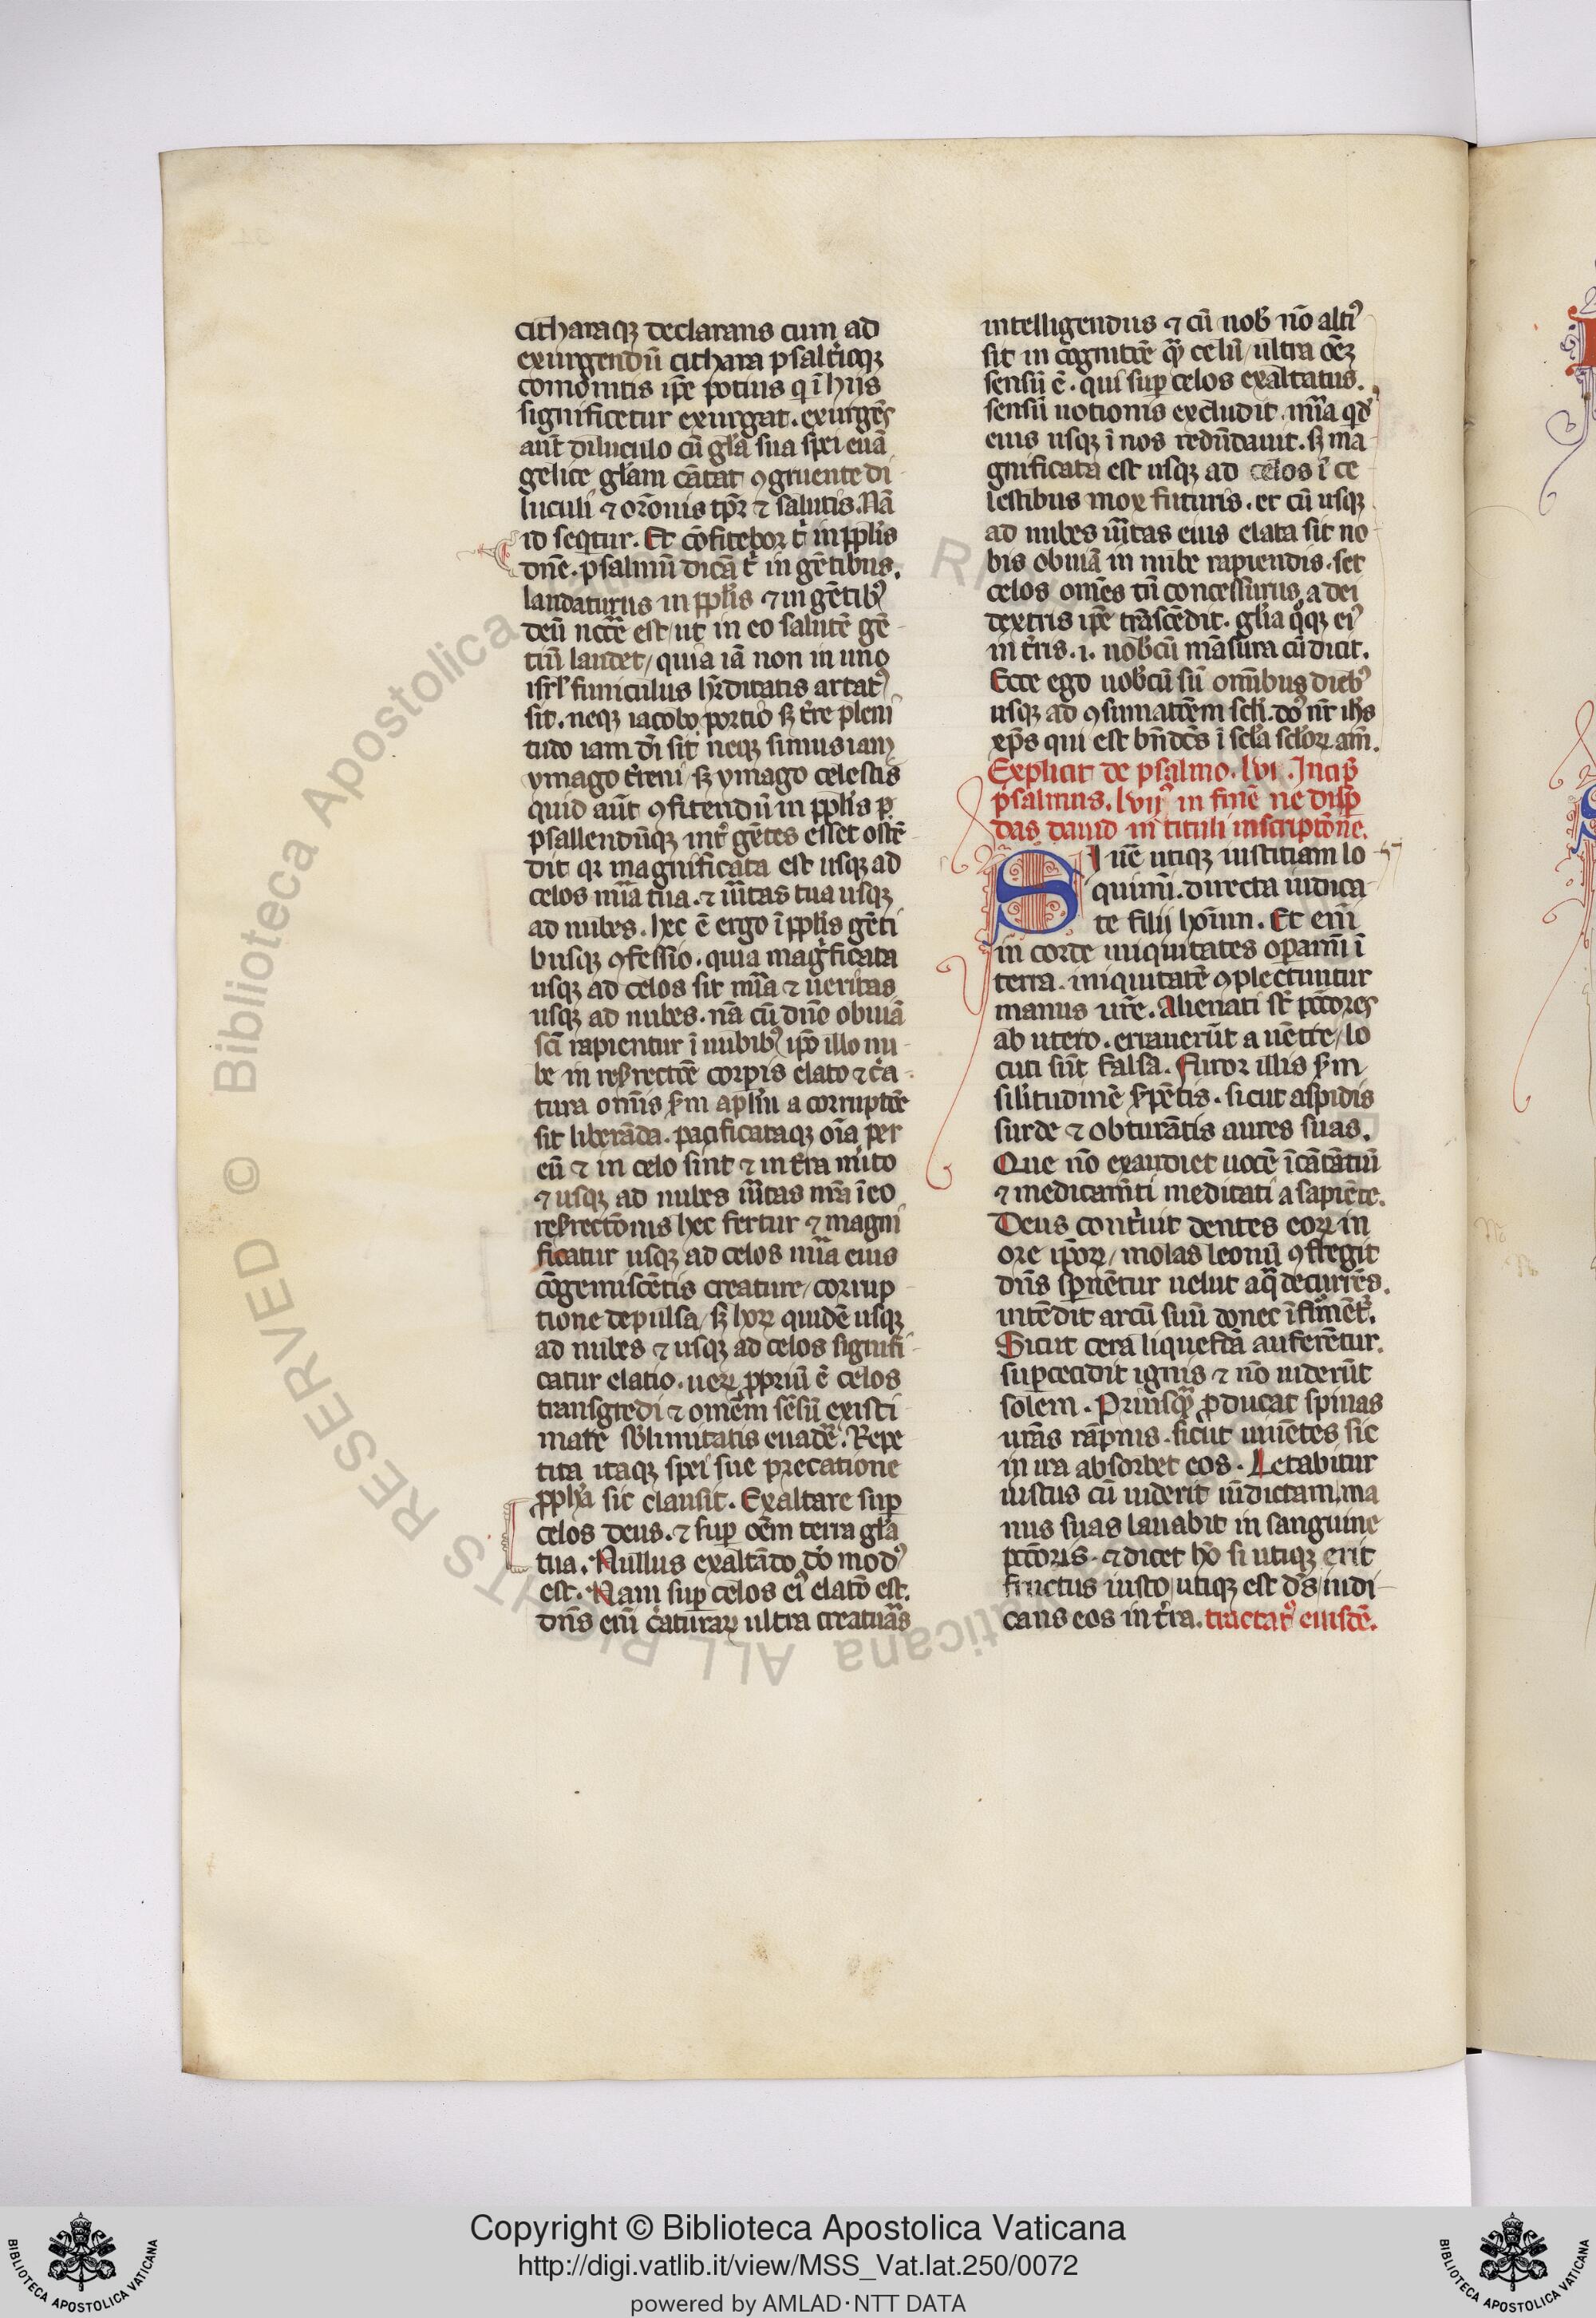 citharaqꝫ declarans cum ad
exurgendū cithara psalt̾ioqꝫ
comonitis ip̄e potius q̄ ī hiis
significetur exurgat. exurgēs
aut̄ diluculo cū gl̄a sua spei euā
gelice gl̄am cātat ꝯgruente di
luculi ⁊ or̄onis tp̄r ⁊ salutis. Nā
id seqtur. Et cōfitebor t̾ in ppl̄is
dn̄e. psalmū dicā t̾ in gētibus.
laudaturus in ppl̄is ⁊ in gētibꝰ
deū nccē est/ ut in eo salutē gē
tiū laudet/ quia iā non in uno
isrl̄ funiculus hr̄ditatis artatꝰ
sit. neqꝫ iacobo portio sꝫ t̾re pleni
tudo iam dn̄i sit neqꝫ simus iam
ymago t̾reni/ sꝫ ymago celestis
quid aut̄ ꝯfitendū in ppl̄is ꝑ
psallendūqꝫ int̾ gētes esset ostē
dit qr magnificata est usqꝫ ad
celos mīa tua. ⁊ uītas tua usqꝫ
ad nubes. hec ē ergo ī ppl̄is gēti
busqꝫ ꝯfessio. quia mag̾ficata
usqꝫ ad celos sit mīa ⁊ ueritas
usqꝫ ad nubes. nā cū dn̄o obuiā
sc̄i rapientur ī nubibꝰ ip̄o illo nu
be in resr̄rectōe corpis elato ⁊ c̾a
tura om̄is s̄m apl̄m a corruptōe
sit liberāda. pacificataqꝫ oīa per
eū ⁊ in celo sint ⁊ in t̾ra m̾ito
⁊ usqꝫ ad nubes uītas nr̄a ī eo
resr̄rectōnis hec fertur ⁊ magni
ficatur usqꝫ ad celos mīa eius
cōgemiscētis creature/ corrup
tione depulsa/ sꝫ hoꝝ quidē usqꝫ
ad nubes ⁊ usqꝫ ad celos signifi
catur elatio. ueꝝ ꝓpriū ē celos
transgredi ⁊ omēm sēsū existi
mate sb̄limitatis euadē. Repe
tita itaqꝫ spei sue precatione
ꝓph̄a sic clausit. Exaltare suꝑ
celos deus. ⁊ suꝑ oēm terra gl̄a
tua. Nullus exaltādo dō modꝰ
est. Nam suꝑ celos eiꝰ elatō est.
dn̄s eīm c̾aturaꝝ ultra creaturas
intelligendus ⁊ cū nob̄ nō altiꝰ
sit in cognitōe qͣꝫ celū/ ultra oēꝫ
sensū ē. qui suꝑ celos exaltatus.
sensū notionis excludit. mīa qd̄
eius usqꝫ ī nos redūdauit. sꝫ ma
gnificata est usqꝫ ad celos ī ce
lestibus mox futuris. et cū usqꝫ
ad nubes uītas eius elata sit no
bis obuiā in nube rapiendis. set
celos om̄es tū concessurus a dei
dextris ip̄e trāscēdit. gl̄ia qͦqꝫ eiꝰ
in t̾ris. i. nob̄cū māsura cū dicit.
Ecce ego uob̄cū sū omībus diebꝰ
usqꝫ ad ꝯsumatōem scl̄i. dōꝰ nr̄ ih̄s
xp̄s qui est bn̄dc̄s ī scl̄a scl̄oꝝ am̄.
Explicit de psalmo. lvi. Incip̄
psalmus. lvijꝰ in finē ne disꝑ
das dauid in tituli inscriptōne.
SI uē utiqꝫ iustitiam lo 57
quimī. directa iudica
te filii hoīum. Et enī
in corde iniquitates oꝑamī ī
terra. iniquitatē ꝯplectuntur
manus ur̄e. Alienati st̄ pctōres
ab utero. errauerūt a uētre/ lo
cuti sūt falsa. Furor illis s̄m
sil̄itudinē s̾pētis. sicut aspidis
surde ⁊ obturātis aures suas.
Que nō exaudiet uocē īcātātiū
⁊ medicamīti medicati a sapiēte.
Deus cont̾uit dentes eoꝝ in
ore ip̄oꝝ/ molas leonū ꝯfregit
dn̄s spernētur uelut aqͣ decurrēs.
intēdit arcū suū donec īfirmēt̾.
Sicut cera liquefc̄a auferētur.
suꝑcecidit ignis ⁊ nō uiderūt
solem. Priusqͣꝫ ꝓducat spinas
ur̄as rāpnus. sicut uiuētes sic
in ira absorbet eos. Letabitur
iustus cū uiderit uīdictam. ma
nus suas lauabit in sanguine
pctōris. ⁊ dicet hō si utiqꝫ erit
fructus iusto/ utiqꝫ est d̄s iudi
cans eos in t̾ra. tractatꝰ eiusdē.
© Biblioteca Apostolica Vaticana ALL RIGHTS RESERVED
Copyright © Biblioteca Apostolica Vaticana
http://digi.vatlib.it/view/MSS_Vat.lat.250/0072
powered by AMLAD·NTT DATA
BIBLIOTECA APOSTOLICA VATICANA
BIBLIOTECA APOSTOLICA VATICANA